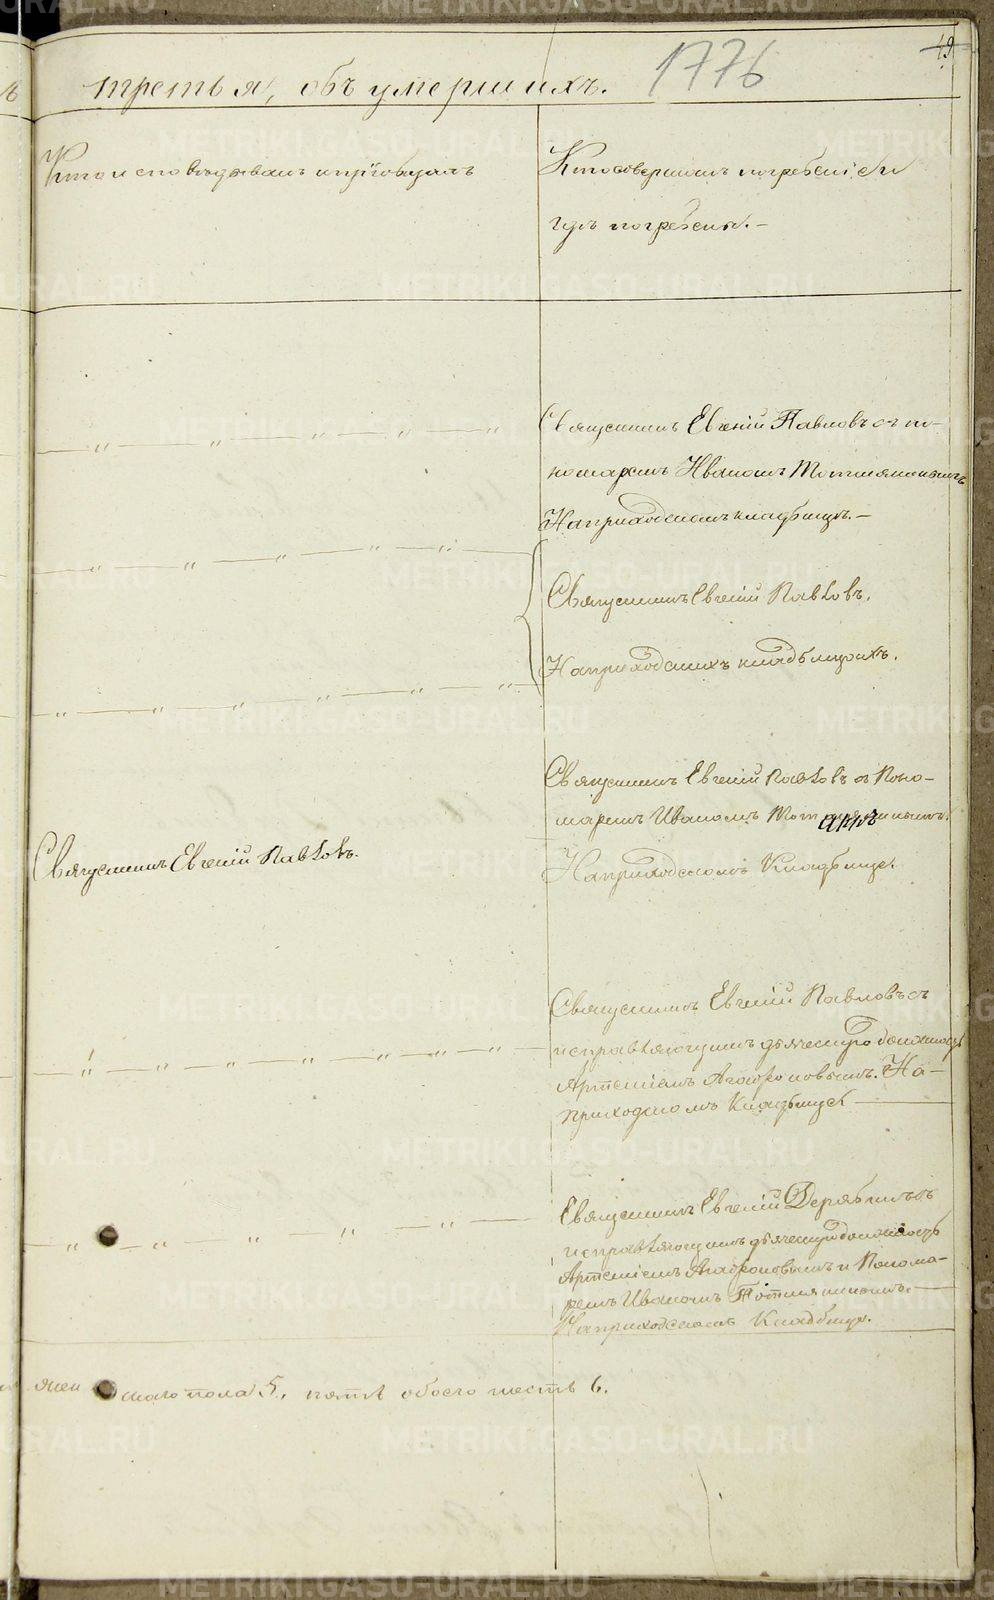 третья, объ умершихъ.
1776
49
Кто исповѣдывалъ и пріобщалъ
Кто совершалъ погребеніе и
гдѣ погребены.
Священникъ Евгеній Павловъ съ по-
номаремъ Иваномъ
На приходскомъ кладбищѣ.
Священникъ Евгеній Павловъ.
На приходскихъ кладбищахъ.
Священникъ Евгеній Павловъ съ Поно-
маремъ Иваномъ
На приходскомъ Кладбище.
Священникъ Евгеній Павловъ.
Священникъ Евгеній Павловъ съ
исправляющимъ дьяческую должность
Артеміемъ Агафоновымъ. На
приходскомъ Кладбищѣ
Священникъ Евгеній Дерябинъ съ
исправляющимъ дьяческую должность
Артеміемъ Агафоновымъ и Понома-
ремъ Иваномъ
На приходскомъ Кладбищѣ.
женскаго пола 5, пять обоего шесть 6.
METRIKI.GASO-URAL.RU